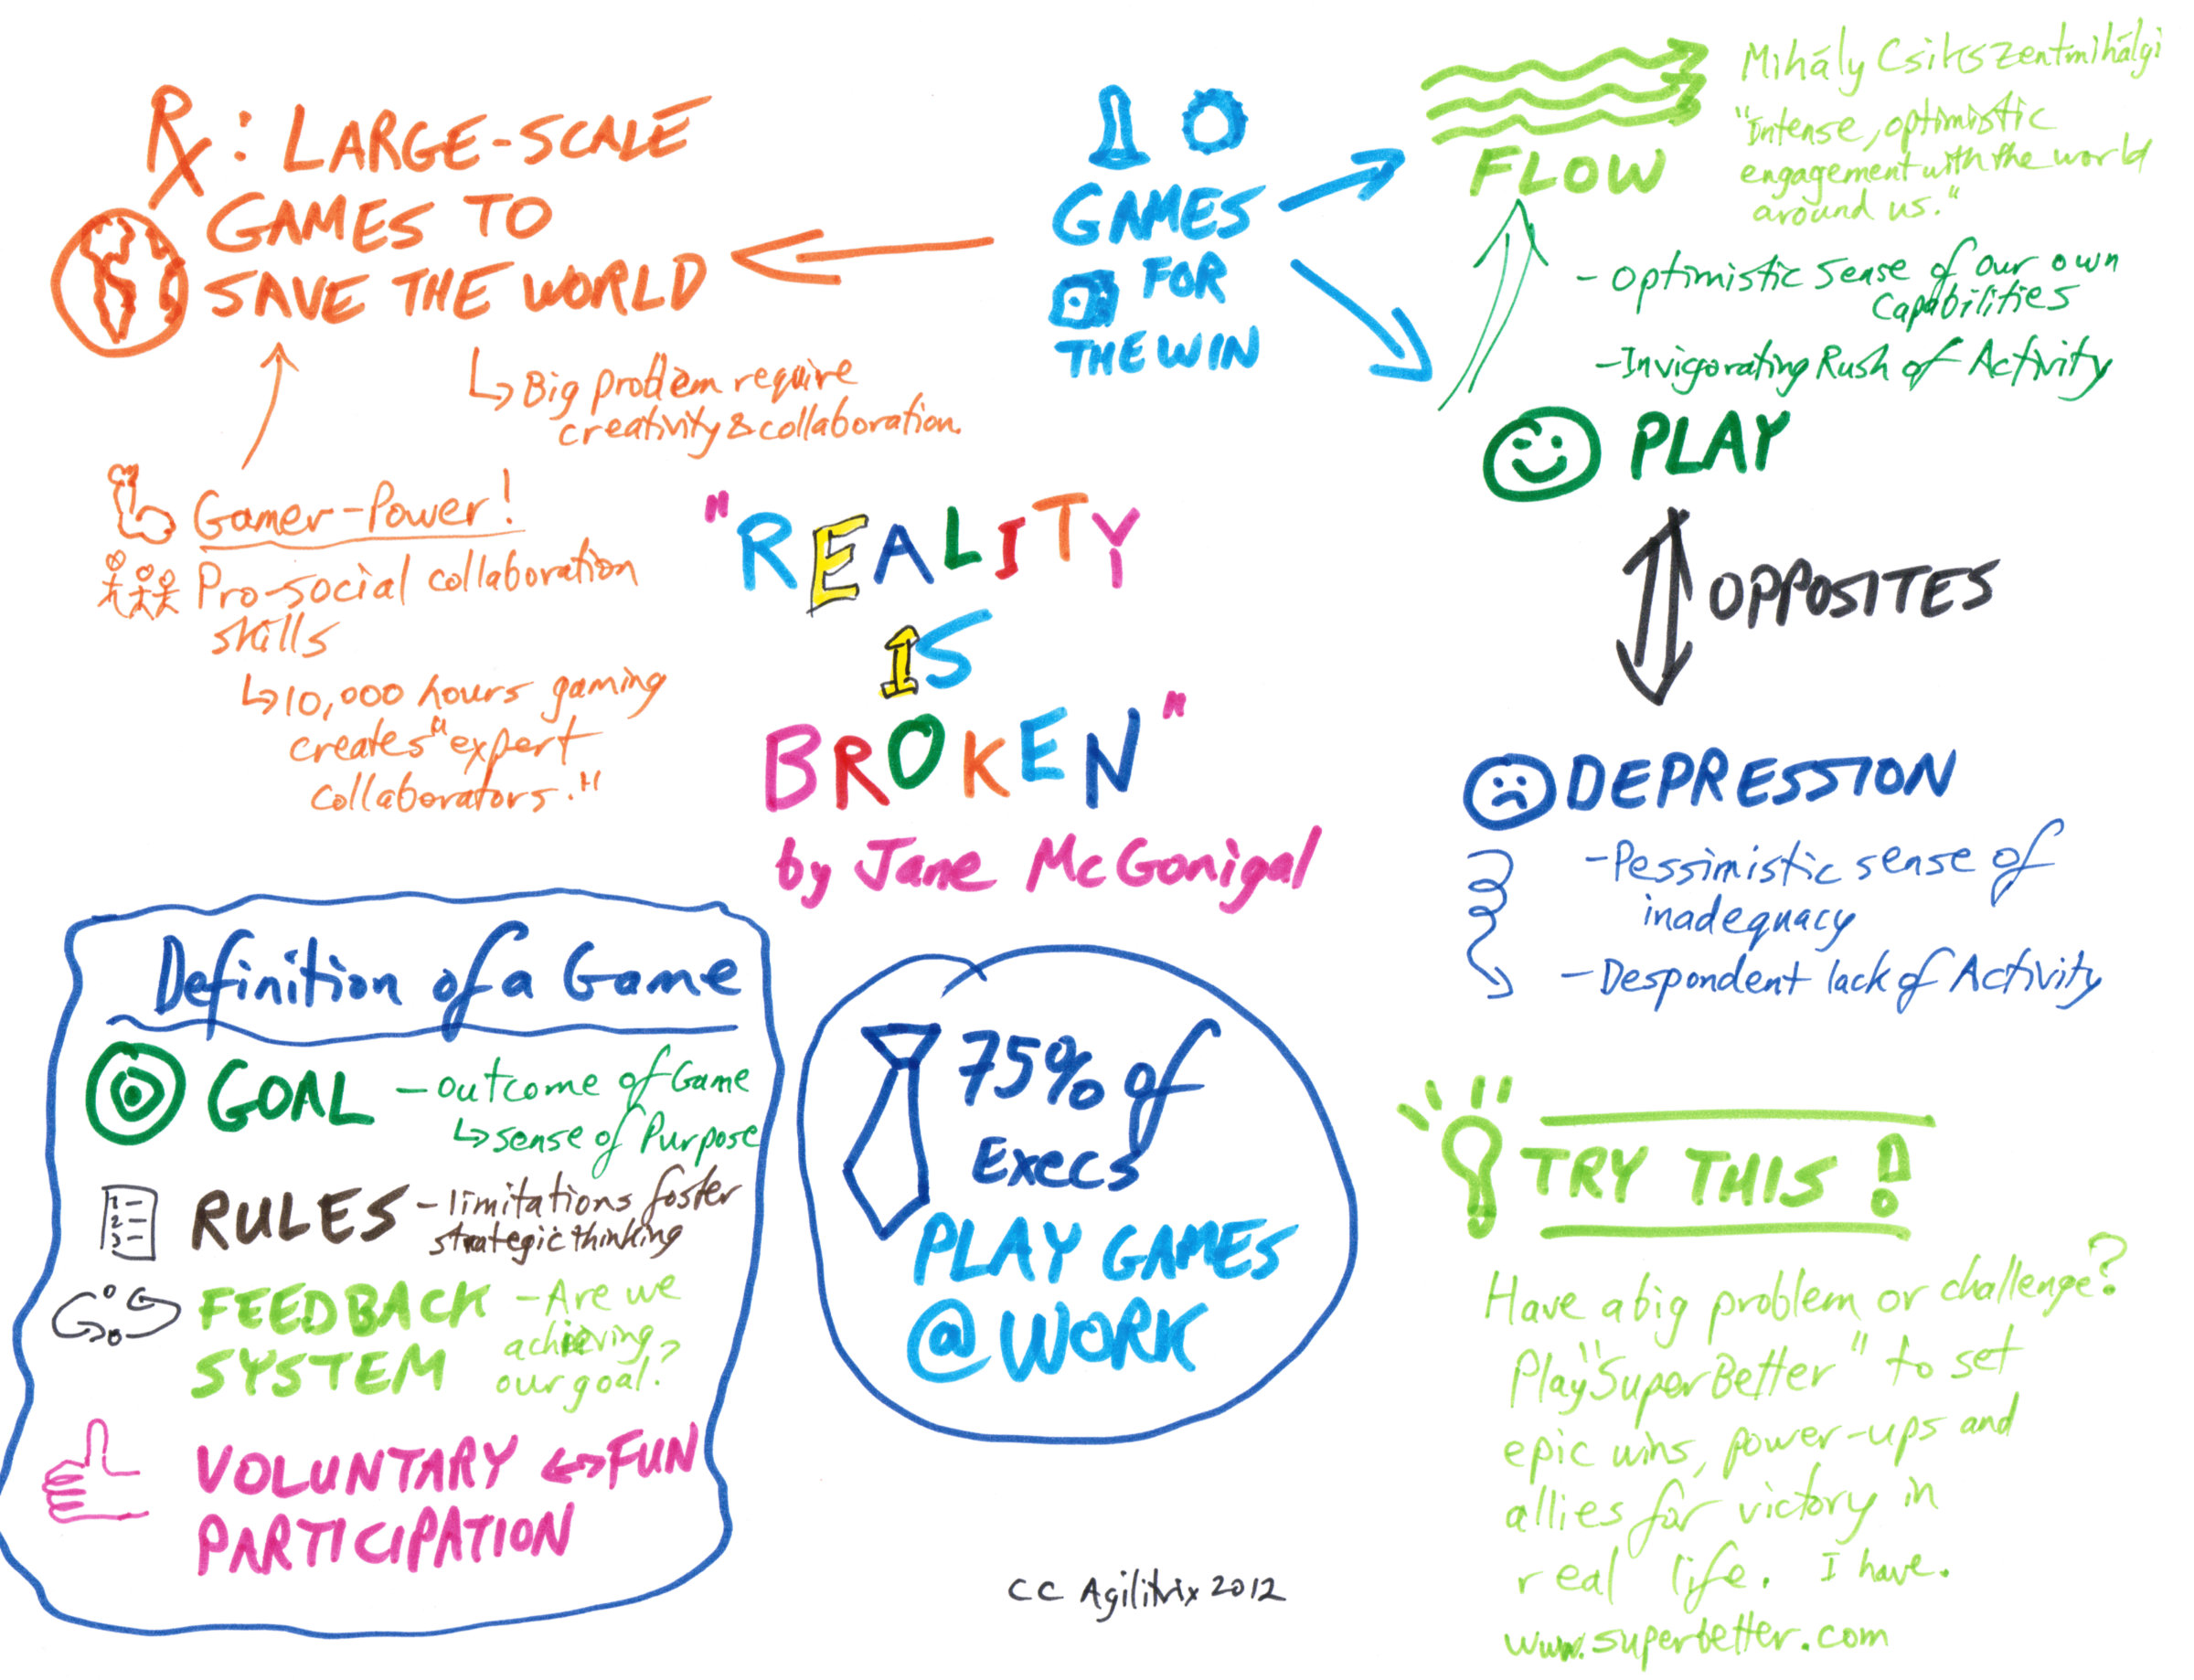 Rx: LARGE-SCALE
GAMES TO
SAVE THE WORLD
↳ Big problem require
creativity & collaboration.
Gamer-Power!
Pro-social collaboration
skills
↳ 10,000 hours gaming
creates "expert
collaborators."
GAMES
FOR
THE WIN
FLOW
Mihály Csikszentmihálgi
"Intense, optimistic
engagement with the world
around us."
- Optimistic Sense of our own
Capabilities
- Invigorating Rush of Activity
PLAY
OPPOSITES
DEPRESSION
- Pessimistic sense of
inadequacy
- Despondent lack of Activity
"REALITY
IS
BROKEN"
by Jane McGonigal
Definition of a Game
GOAL - outcome of Game
↳ sense of Purpose
1-
2-
3-
RULES - limitations foster
strategic thinking
FEEDBACK - Are we
SYSTEM achieving
our goal?
VOLUNTARY ↔ FUN
PARTICIPATION
75% of
Execs
PLAY GAMES
@ WORK
TRY THIS!
Have a big problem or challenge?
Play "SuperBetter" to set
epic wins, power-ups and
allies for victory in
real life. I have.
www.superbetter.com
CC Agilitrix 2012